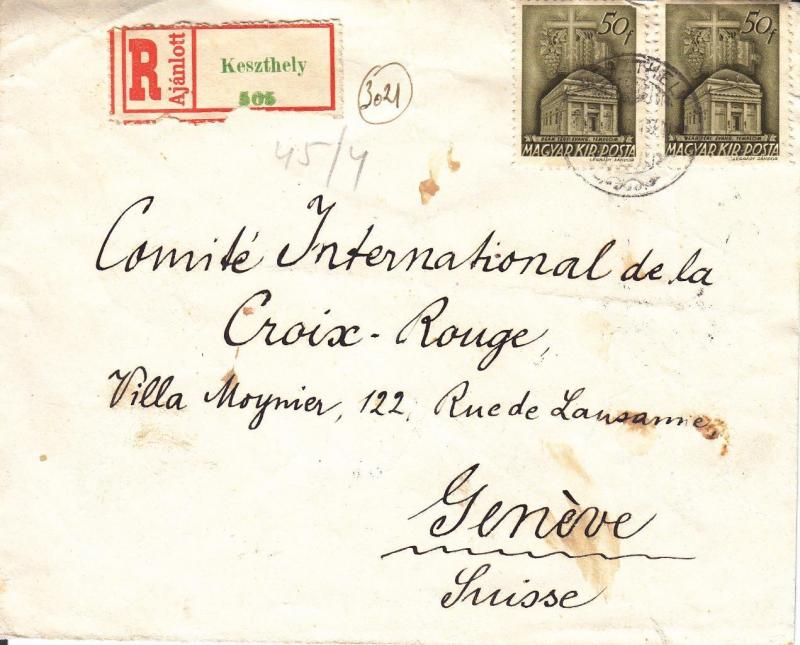 R
Ajánlott
Keszthely
505
3021
45/4
50f
MAGYAR KIR. POSTA
LÉGRÁDY SÁNDOR
50f
MAGYAR KIR. POSTA
LÉGRÁDY SÁNDOR
Comité International de la
Croix-Rouge,
Villa Moynier, 122, Rue de Lausanne,
Genève
Suisse